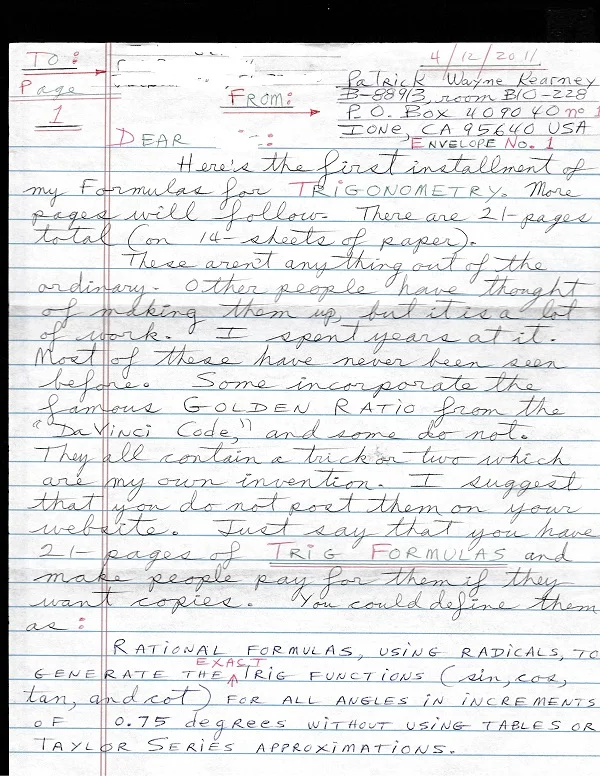 TO:
4/12/2011
Page
Patrick Wayne Kearney
1
FROM:
B-88913, room B10-228
P.O. Box 409040 no 1
IONE, CA 95640 USA
ENVELOPE NO. 1
DEAR
Here's the first installment of
my Formulas for TRIGONOMETRY. More
pages will follow. There are 21-pages
total (on 14-sheets of paper).
These aren't anything out of the
ordinary. Other people have thought
of making them up, but it is a lot
of work. I spent years at it.
Most of these have never been seen
before. Some incorporate the
famous GOLDEN RATIO from the
"DaVinci Code," and some do not.
They all contain a trick or two which
are my own invention. I suggest
that you do not post them on your
website. Just say that you have
21-pages of TRIG FORMULAS and
make people pay for them if they
want copies. You could define them
as:
RATIONAL FORMULAS, USING RADICALS, TO
GENERATE THE EXACT TRIG FUNCTIONS (sin, cos,
tan, and cot) FOR ALL ANGLES IN INCREMENTS
OF 0.75 degrees WITHOUT USING TABLES OR
TAYLOR SERIES APPROXIMATIONS.